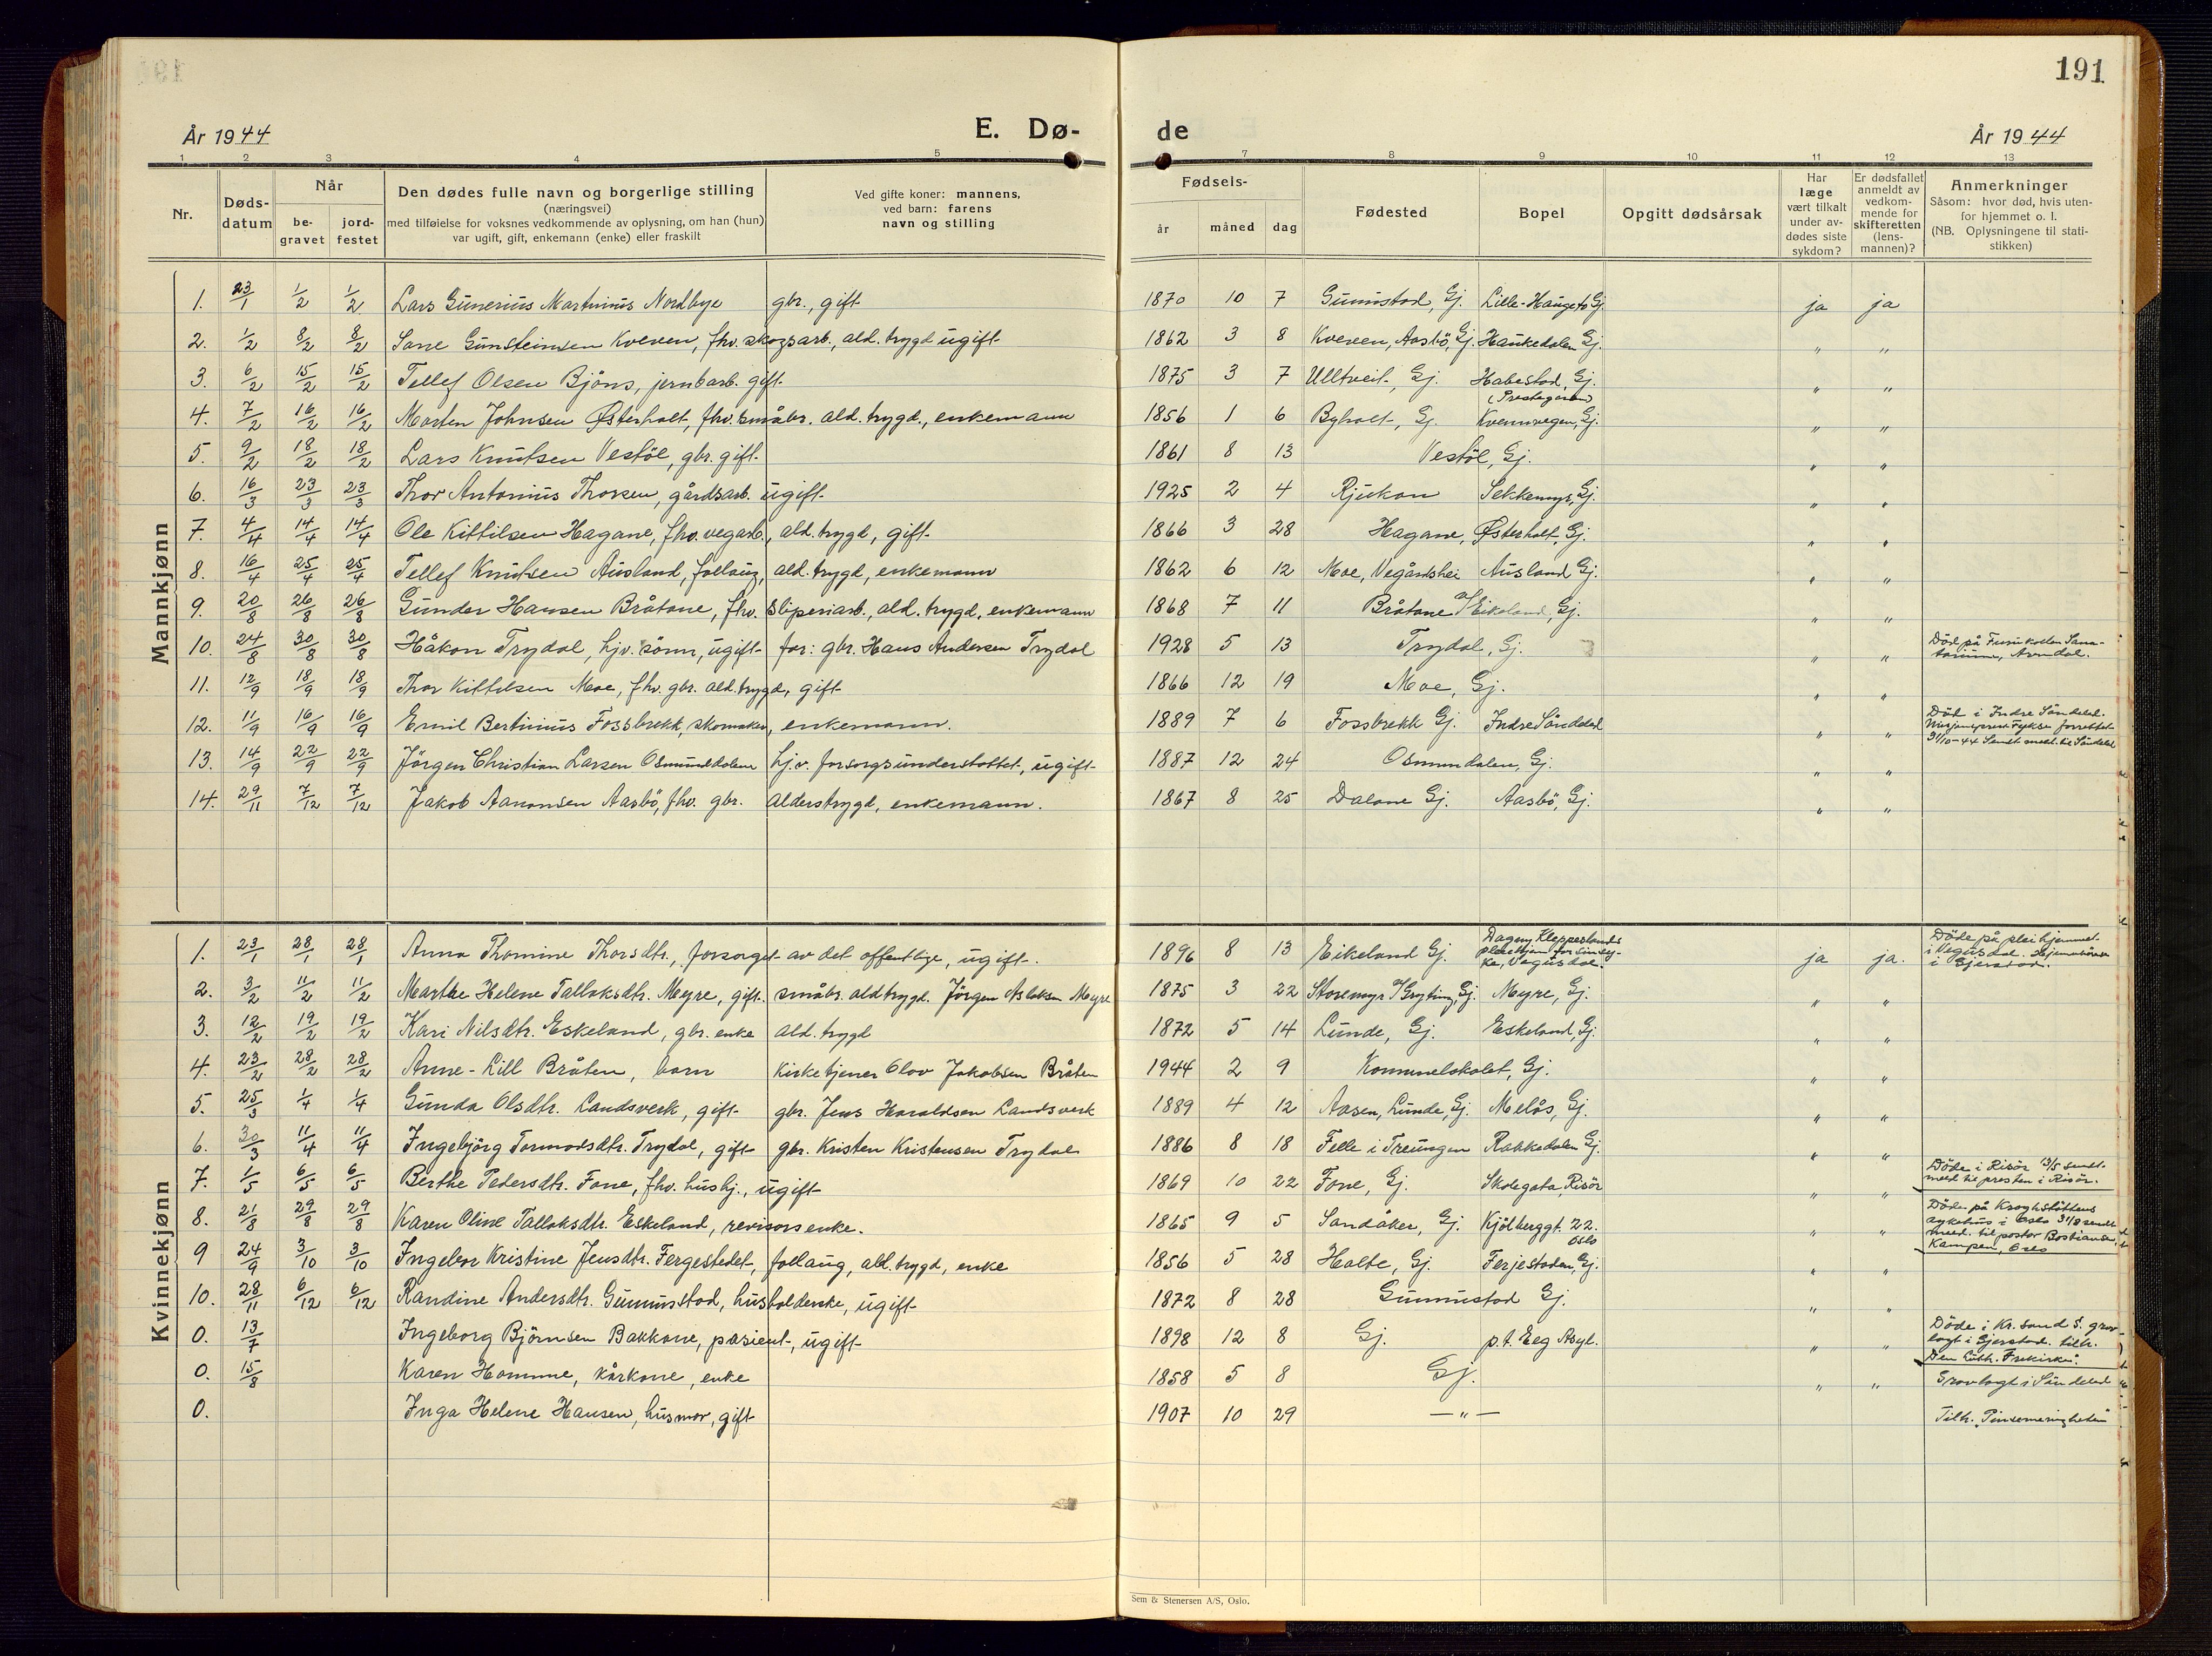 191
År 1944 E. Dø- de År 1944
1 2 3 4 5 7 8 9 10 11 12 13
Nr. Døds-datum Når be-gravet jord-festet Den dødes fulle navn og borgerlige stilling (næringsvei) med tilføielse for voksnes vedkommende av oplysning, om han (hun) var ugift, gift, enkemann (enke) eller fraskilt Ved gifte koner: mannens, ved barn: farens navn og stilling Fødsels- år måned dag Fødested Bopel Opgitt dødsårsak Har læge vært tilkalt under av-dødes siste sykdom? Er dødsfallet anmeldt av vedkom-mende for skifteretten (lens-mannen)? Anmerkninger Såsom: hvor død, hvis uten-for hjemmet o. l. (NB. Oplysningene til stati-stikken)
Mannkjønn
1. 23/1 1/2 1/2 Lars Gunerius Martinius Nordbye gbr., gift 1870 10 7 Gunnstad, Gj. Lille-Haugeto Gj. ja ja
2. 1/2 8/2 8/2 Sone Gunsteinsen Kveven, fhv. skogsarb., ald. trygd ugift 1862 3 8 Kveven, Aasbö, Gj. Haukedalen Gj. " "
3. 6/2 15/2 15/2 Tellef Olsen Bjöns, jernbarb. gift 1875 3 7 Ulltveit, Gj. Habestad, Gj. (Prestegården) " "
4. 7/2 16/2 16/2 Morten Johnsen Østerholt, fhv. småbr. ald. trygd., enkemann 1856 1 6 Byholt, Gj. Kvennvegen, Gj. " "
5. 9/2 18/2 18/2 Lars Knutsen Vestöl, gbr. gift 1861 8 13 Vestöl, Gj. " "
6. 16/3 23/3 23/3 Thor Antonius Thorsen, gårdsarb. ugift 1925 2 4 Rjukan Sekkemyr, Gj. " "
7. 4/4 14/4 14/4 Ole Kittilsen Hagane, fhv. vegarb., ald. trygd, gift 1866 3 28 Hagane, Østerholt, Gj. " "
8. 16/4 25/4 25/4 Tellef Knutsen Ausland, follaug, ald. trygd, enkemann 1862 6 12 Moe, Vegårdshei Ausland Gj. " "
9. 20/8 26/8 26/8 Gunder Hansen Bråtane, fhv. sliperiarb., ald. trygd, enkemann 1868 7 11 Bråtane u/Eikeland, Gj. " "
10. 24/8 30/8 30/8 Håkon Trydal, hjv. sönn, ugift far: gbr. Hans Andersen Trydal 1928 5 13 Trydal, Gj. " " Död på Furukollen Sana-torium, Arendal.
11. 12/9 18/9 18/9 Thor Kittelsen Moe, fhv. gbr. ald. trygd, gift 1866 12 19 Moe, Gj. " "
12. 11/9 16/9 16/9 Emil Bertinius Fossbrekk, skomaker, enkemann. 1889 7 6 Fossbrekk Gj. Indre Söndeled " " Död i Indre Söndeled. forrettet 31/10-44 Sendt meld. til Söndeled
13. 14/9 22/9 22/9 Jörgen Christian Larsen Osmundalen hj.v. forsorgsunderstöttet, ugift 1887 12 24 Osmundalen, Gj. " "
14. 29/11 7/12 7/12 Jakob Aanonsen Aasbö, fhv. gbr. alderstrygd, enkemann. 1867 8 25 Dalane Gj. Aasbö, Gj. " "
Kvinnekjønn
1. 23/1 28/1 28/1 Anna Thomine Thorsdtr., forsorget av det offentlige, ugift. 1896 8 13 Eikeland Gj. Dagny Kleppeslands pleiehjem for sinssy-ke, Vegusdal. ja ja. Döde på pleihjemmet i Vegusdal. Hjemmehörende i Gjerstad.
2. 3/2 11/2 11/2 Marthe Helene Tallaksdtr. Meyre, gift. småbr. ald trygd. Jörgen Aslaksen Myre 1875 3 22 Storemyr u/Gryting, Gj. Meyre, Gj. " "
3. 12/2 19/2 19/2 Kari Nilsdtr. Eskeland, gbr. enke ald. trygd 1872 5 14 Lunde, Gj. Eskeland, Gj. " "
4. 23/2 28/2 28/2 Anne-Lill Bråten, barn Kirketjener Olav Jakobsen Bråten 1944 2 9 Kommunelokalet, Gj. " "
5. 25/3 1/4 1/4 Gunda Olsdtr. Landsverk, gift gbr. Jens Haraldsen Landsverk 1889 4 12 Aasen, Lunde, Gj. Melås, Gj. " "
6. 30/3 11/4 11/4 Ingebjörg Tormodsdtr. Trydal, gift gbr. Kristen Kristensen Trydal 1886 8 18 Felle i Treungen Rakkedalen Gj. " "
7. 1/5 6/5 6/5 Berthe Pedersdtr. Fone, fhv. hushj., ugift 1869 10 22 Fone, Gj. Skolegata, Risör " " Döde i Risör 13/5 sendt meld til presten i Risör.
8. 21/8 29/8 29/8 Karen Oline Tallaksdtr. Eskeland, revisors enke. 1865 9 5 Sandåker, Gj. Kjölberggt. 22. Oslo " " Döde på Kroghstöttens sykehus i Oslo 31/8 sendt meld. til pastor Bostiansen, Kampen, Oslo
9 24/9 3/10 3/10 Ingebor Kristine Jensdtr. Fergestedet, follaug, ald. trygd, enke 1856 5 28 Holte, Gj. Ferjestaden, Gj. " "
10. 28/11 6/12 6/12 Randine Andersdtr. Gunnustad, husholderske, ugift 1872 8 28 Gunnustad Gj. " "
0. 13/7 Ingeborg Björnsen Bakkane, pasient, ugift 1898 12 8 Gj. p.t. Eeg Asyl. " " Döde i Kr. sand S. grav-lagt i Gjerstad. tilh. Den Luth. Frikirke.
0. 15/8 Karen Homme, kårkone, enke 1858 5 8 Gj. " " Gravlagt i Söndeled
0. Inga Helene Hansen, husmor, gift 1907 10 29 — " — Tilh. "Pinsemenigheten"
Sem & Stenersen A/S, Oslo.